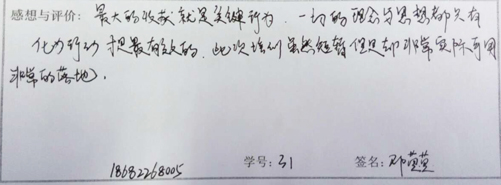 感想与评价：最大的收获就是关键行为，一切的理念与思想都只有
化为行动才是最有效的，此次培训虽然短暂但是却非常实际可用
非常的落地。
18682268005 学号：31 签名：邓莹莹